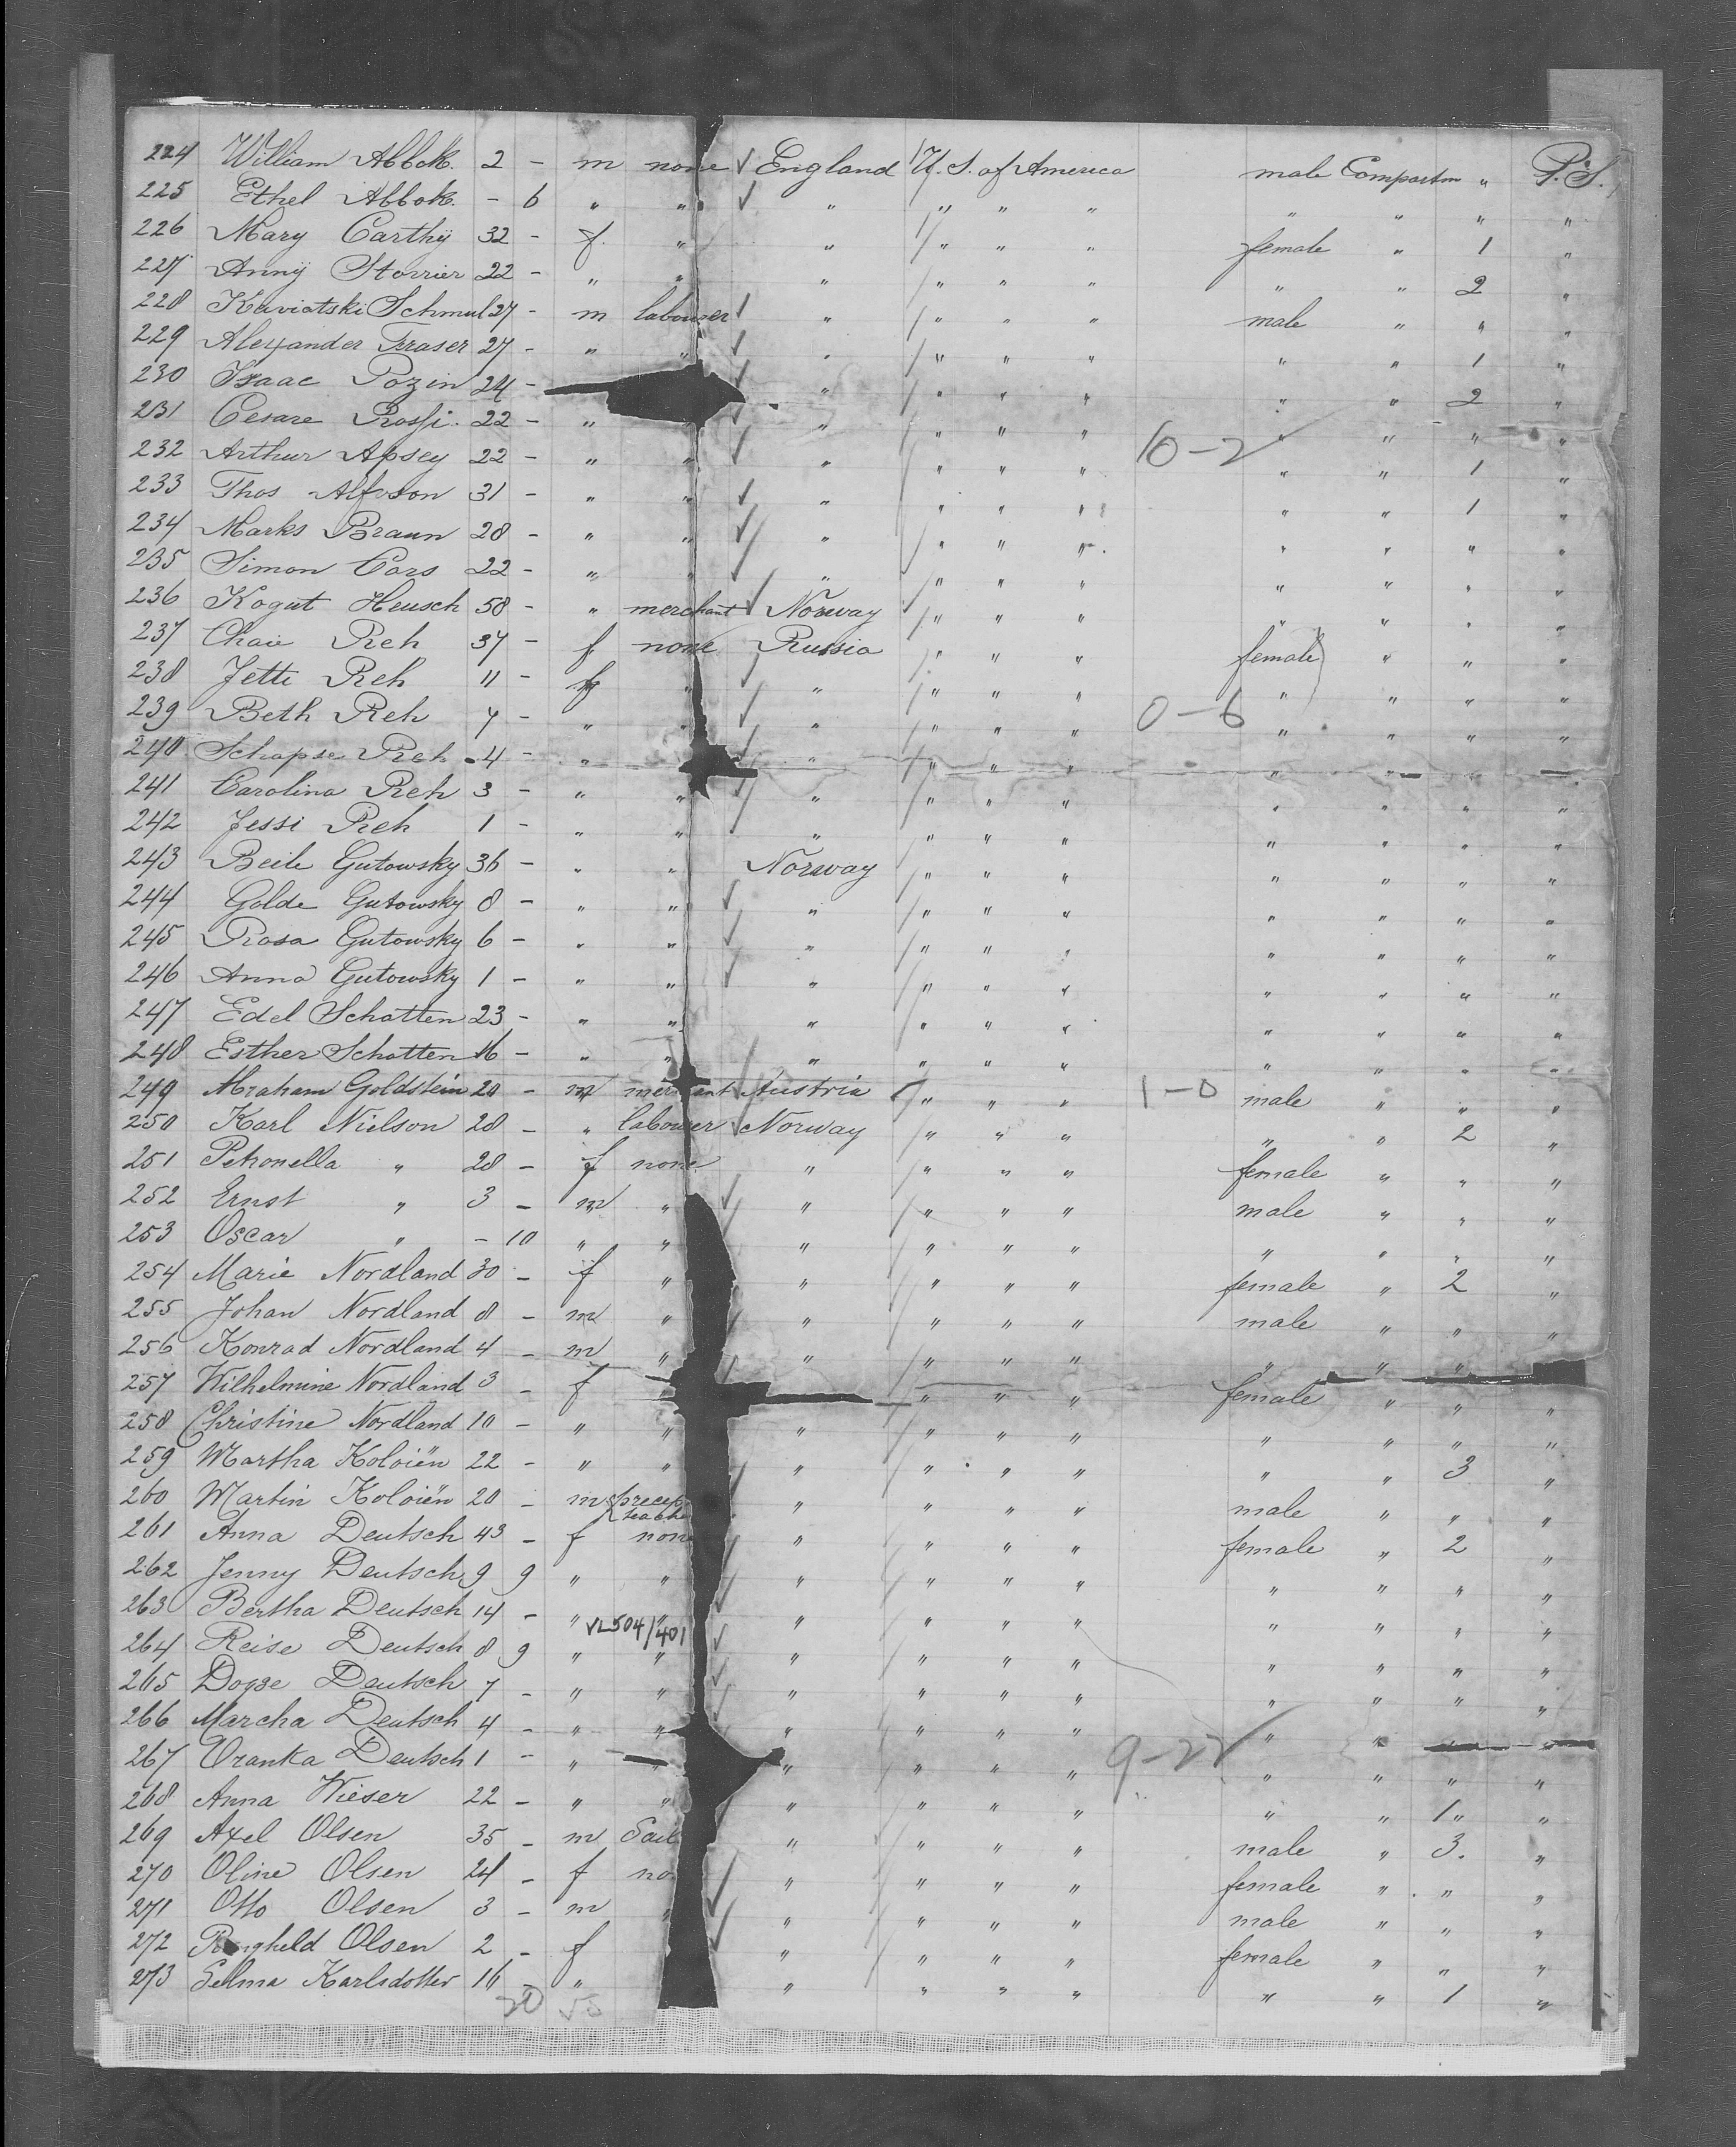 224 William Abbok. 2 - m none ✓ England U. S. of America male Compartm " P. S.
225 Ethel Abbok. - 6 " " ✓ " " " " " " " "
226 Mary Carthÿ 32 - f. " " " " " female " 1 "
227 Annÿ Storrier 22 - " " " " " " " " 2 "
228 Kaviatski Schmul 27 - m labourer ✓ " " " " male " " "
229 Alexander Fraser 27 - " " ✓ " " " " " " 1 "
230 Isaac Pozin 24 - ✓ " " " " " " 2 "
231 Cesare Rossi. 22 - " " " " " " " " "
232 Arthur Apsey 22 - " " ✓ " " " " 10-2 " " 1 "
233 Thos Alfson 31 - " " ✓ " " " " " " 1 "
234 Marks Braun 28 - " " ✓ " " " " " " " "
235 Simon Cors 22 - " " ✓ " " " " " " " "
236 Kogut Heusch 58 - " merchant ✓ Norway " " " " " " "
237 Chaie Reh 37 - f none Russia " " " female " " "
238 Jette Reh 11 - f " ✓ " " " " " " " "
239 Beth Reh 7 - " " ✓ " " " " 0-6 " " " "
240 Schapse Reh 4 - " ✓ " " " " " " " "
241 Carolina Reh 3 - " " ✓ " " " " " " " "
242 Jessi Reh 1 - " " " " " " " " " "
243 Beile Gutowsky 36 - " " Norway " " " " " " "
244 Golde Gutowsky 8 - " " ✓ " " " " " " " "
245 Rosa Gutowsky 6 - " " ✓ " " " " " " " "
246 Anna Gutowsky 1 - " " ✓ " " " " " " " "
247 Edel Schatten 23 - " " " " " " " " " "
248 Esther Schatten 16 - " " " " " " " " " "
249 Abraham Goldstein 20 - m merchant Austria " " " 1-0 male " " "
250 Karl Nielson 28 - " labourer Norway " " " " " 2 "
251 Petronella " 28 - f none " " " " female " " "
252 Ernst " 3 - m " ✓ " " " " male " " "
253 Oscar " - 10 " " " " " " " " " "
254 Marie Nordland 30 - f " " " " " female " 2 "
255 Johan Nordland 8 - m " " " " " male " " "
256 Konrad Nordland 4 - m " " " " " " " "
257 Wilhelmine Nordland 3 - f " " " female " " "
258 Christine Nordland 10 - " " " " " " " " " "
259 Martha Koloiën 22 - " " " " " " " " 3 "
260 Martin Koloiën 20 - m " " " " male " " "
261 Anna Deutsch 43 - f none " " " " female " 2 "
262 Jenny Deutsch 9 9 " " " " " " " " " "
263 Bertha Deutsch 14 - " " " " " " " " " "
VL504/401
264 Reise Deutsch 8 9 " " ✓ " " " " " " " "
265 Dogse Deutsch 7 - " " ✓ " " " " " " " "
266 Marcha Deutsch 4 - " " " " " " " "
267 Vranka Deutsch 1 - " " " " " " 9-22 " " " "
268 Anna Wieser 22 - " " " " " " " " 1 "
269 Axel Olsen 35 - m " " " " male " 3. "
270 Oline Olsen 24 - f no ✓ " " " " female " " "
271 Otto Olsen 3 - m " ✓ " " " " male " " "
272 Ragheld Olsen 2 - f " " " " female " " "
273 Selma Karlsdotter 16 - " " " " " " " 1 "
20